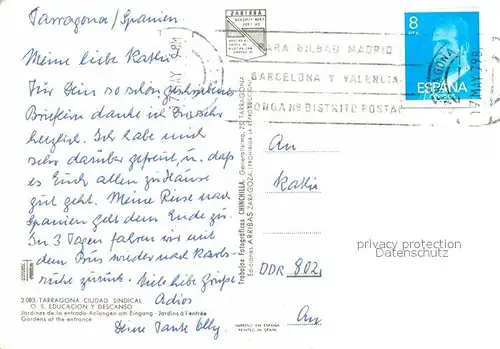 Tarragona/Spanien
Meine liebe Kathi
Für Dein so schön geschriebenes
Brieflein danke ich Dir sehr
herzlich. Ich habe mich
sehr darüber gefreut u. dass
es Euch allen zuhause
gut geht. Meine Reise nach
Spanien geht dem Ende zu.
In 3 Tagen fahren wir mit
dem Bus wieder nach Karls-
ruhe zurück. Viele liebe Grüße
Adios
Deine Tante Elly
2083 - TARRAGONA CIUDAD SINDICAL
O. S. EDUCACION Y DESCANSO
Jardines de la entrada - Anlangen am Eingang - Jardins à l'entrée
Gardens at the entrance
Trabajos Fotográficos: CHINCHILLA. Generalísimo, 75 TARRAGONA
Ediciones ARRIBAS ZARAGOZA PROHIBIDA LA REPRODUCCION
IMPRESO EN ESPAÑA
PRINTED IN SPAIN
ZARAGOZA
PARA BILBAO MADRID
BARCELONA Y VALENCIA
PONGA Nº DISTRITO POSTAL
17 MAY 79
8
PTA
ESPAÑA
An
DDR 802
An
privacy protection
Datenschutz